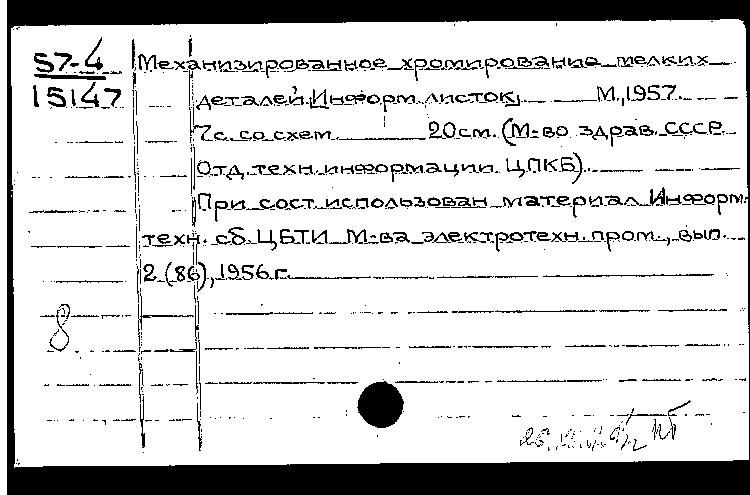 57-4 Механизированное хромирование мелких
15147 деталей. Информ. листок. М., 1957.
7с. со схем. 20см. (М-во здрав. СССР.
Отд. техн. информации. ЦПКБ).
При сост. использован материал Информ.-
техн. сб. ЦБТИ М-ва электротехн. пром., вып.
2 (86), 1956 г.
8